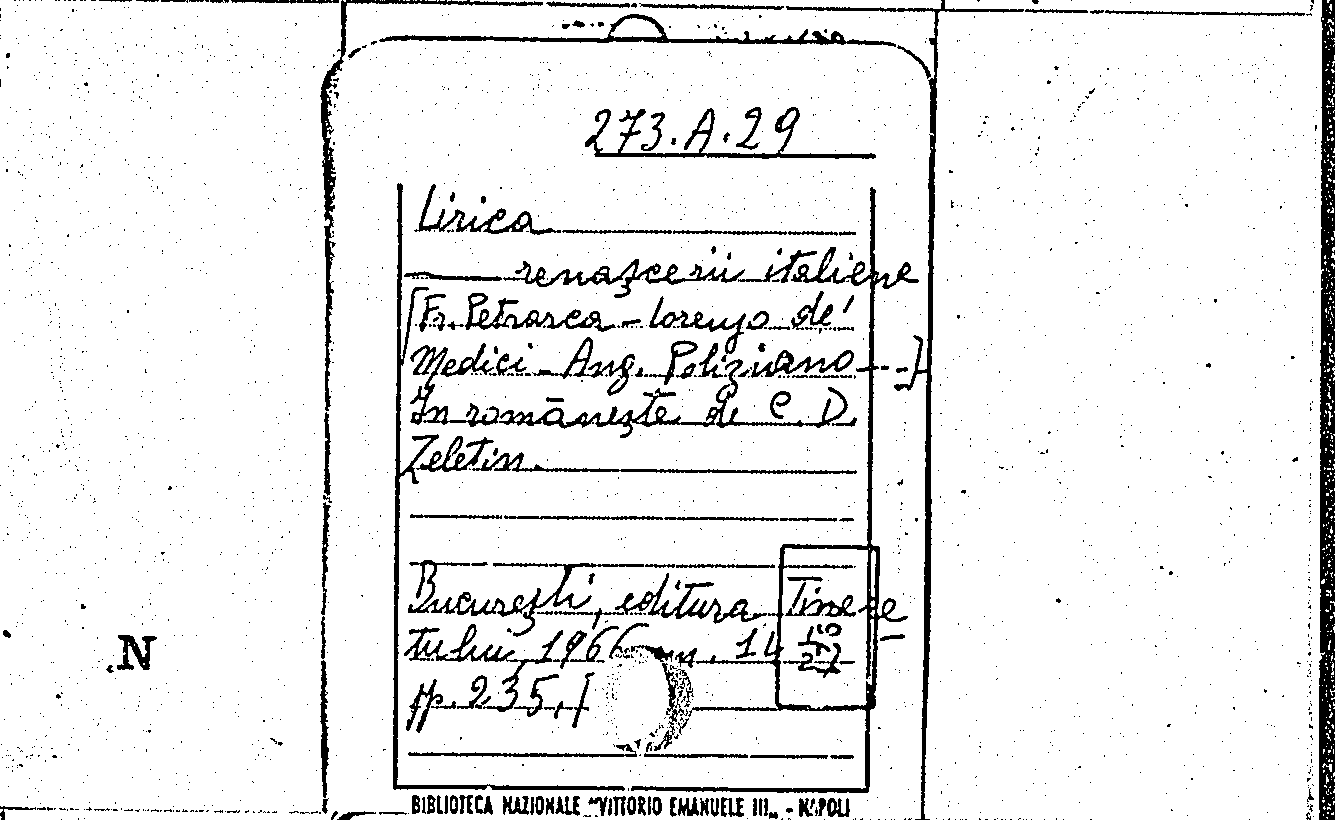 273.A.29
Lirica
—— renaşcerii italiene
[Fr. Petrarca – Lorenzo de'
Medici – Ang. Poliziano ---]
In românește de C. D.
Zeletin.
Bucureşti, editura Tinere
tului, 1966, 14
pp. 235, [
N
BIBLIOTECA NAZIONALE "VITTORIO EMANUELE III„ - NAPOLI